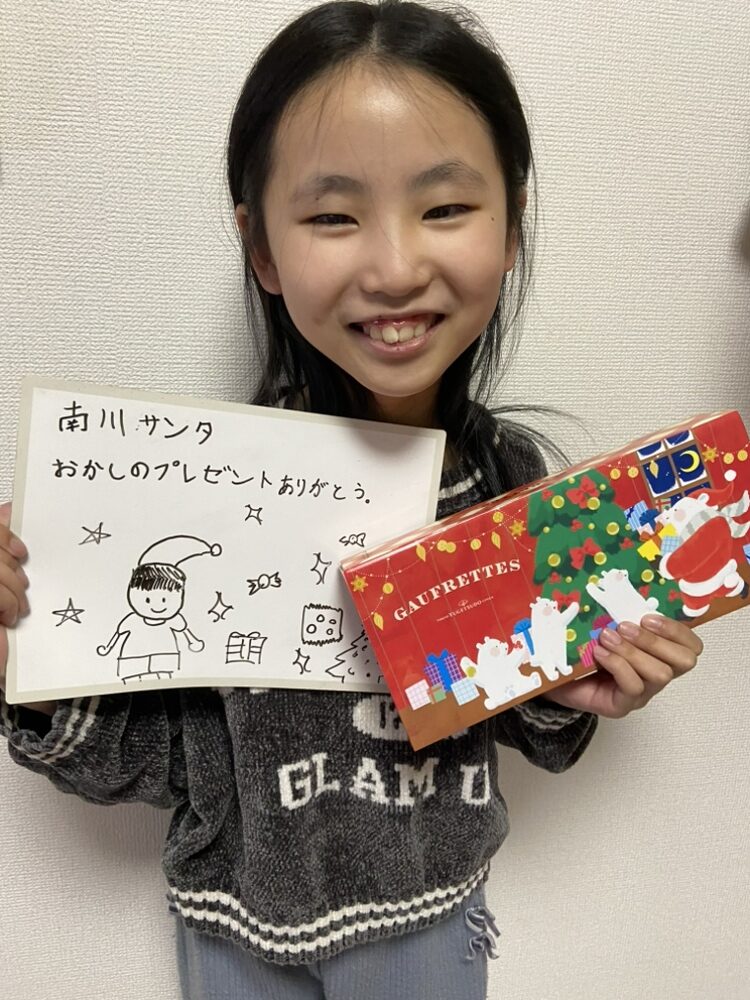 南川サンタ
おかしのプレゼントありがとう。
GAUFRETTES
TUGETSUDO
GLAM U